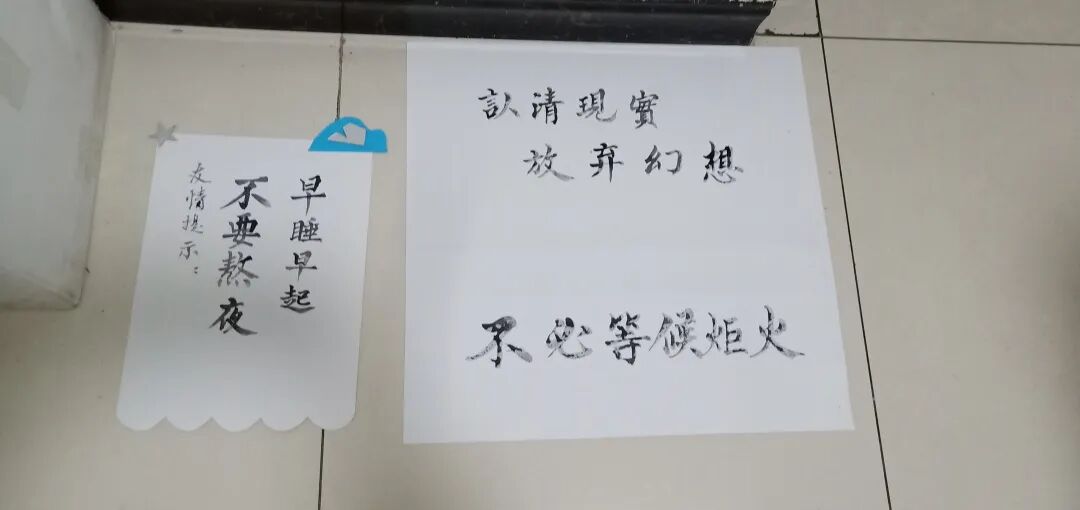 友情提示：
不要熬夜
早睡早起
认清現實
放弃幻想
不必等候炬火